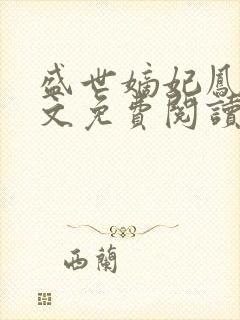 盛世嫡妃鳳
文免費閱讀
西蘭